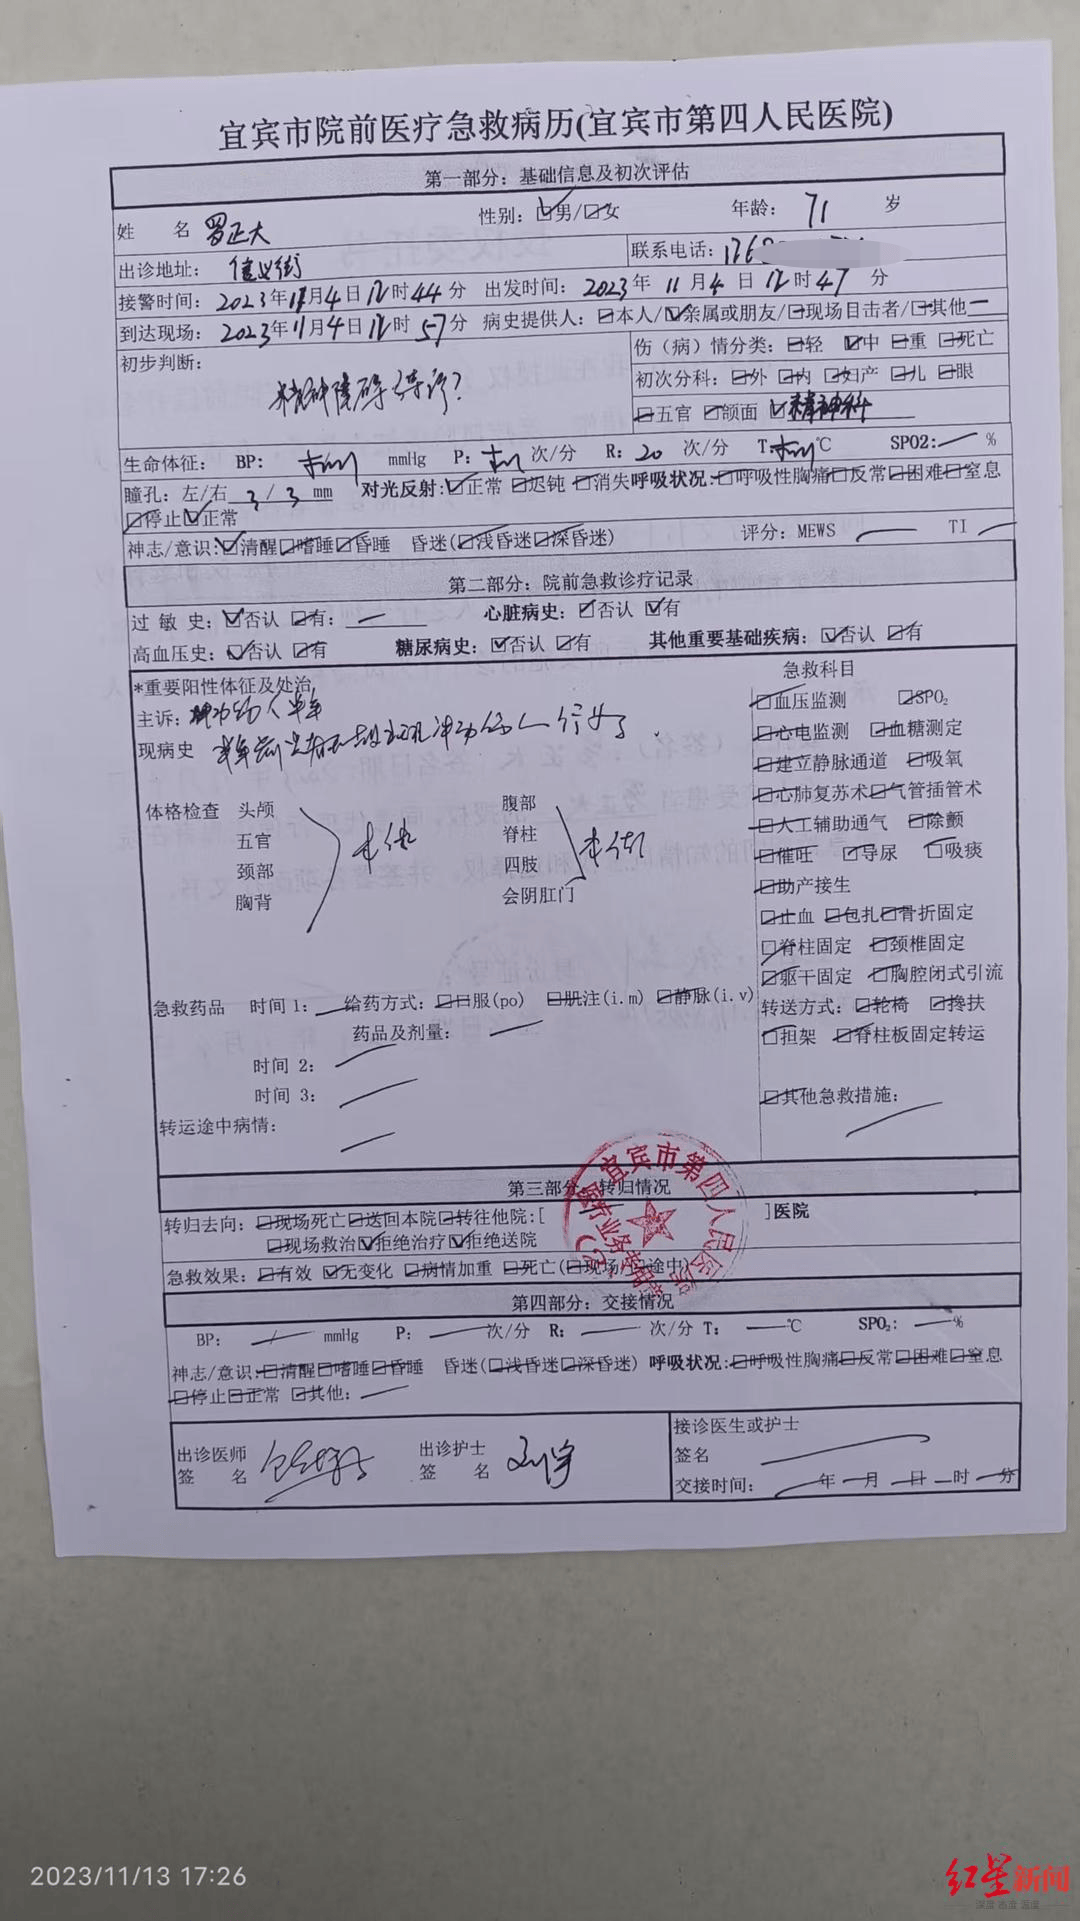 宜宾市院前医疗急救病历(宜宾市第四人民医院)
第一部分: 基础信息及初次评估
姓 名 罗正大 性别: ☑男/□女 年龄: 71 岁
出诊地址: 信义街 联系电话:
接警时间: 2023年11月4日12时44分 出发时间: 2023年11月4日12时47分
到达现场: 2023年11月4日12时57分 病史提供人: □本人/☑亲属或朋友/□现场目击者/□其他
初步判断: 精神障碍待诊?
伤(病)情分类: □轻 ☑中 □重 □死亡
初次分科: □外 □内 □妇产 □儿 □眼
□五官 □颌面 ☑精神科
生命体征: BP: mmHg P: 次/分 R: 20 次/分 T: ℃ SPO2: %
瞳孔: 左/右 3 / 3 mm 对光反射:☑正常 □迟钝 □消失 呼吸状况:□呼吸性胸痛□反常□困难□窒息
□停止☑正常
神志/意识:☑清醒□嗜睡□昏睡 昏迷(□浅昏迷□深昏迷) 评分: MEWS TI
第二部分: 院前急救诊疗记录
过 敏 史: ☑否认 □有: 心脏病史: □否认 ☑有
高血压史: ☑否认 □有 糖尿病史: ☑否认 □有 其他重要基础疾病: ☑否认 □有
*重要阳性体征及处治
主诉:
现病史
体格检查 头颅
五官
颈部
胸背
未作
腹部
脊柱
四肢
会阴肛门
未作
急救药品 时间1: 给药方式: □口服(po) □肌注(i.m) □静脉(i.v)
药品及剂量:
时间 2:
时间 3:
转运途中病情:
急救科目
□血压监测 □SPO₂
□心电监测 □血糖测定
□建立静脉通道 □吸氧
□心肺复苏术□气管插管术
□人工辅助通气 □除颤
□催吐 □导尿 □吸痰
□助产接生
□止血 □包扎□骨折固定
□脊柱固定 □颈椎固定
□躯干固定 □胸腔闭式引流
转送方式: □轮椅 □搀扶
□担架 □脊柱板固定转运
□其他急救措施:
第三部分: 转归情况
转归去向: □现场死亡□送回本院□转往他院:[ ]医院
□现场救治☑拒绝治疗☑拒绝送院
急救效果: □有效 ☑无变化 □病情加重 □死亡(□现场□途中)
宜宾市第四人民医院
医疗业务专用章
第四部分: 交接情况
BP: mmHg P: 次/分 R: 次/分 T: ℃ SPO₂: %
神志/意识:□清醒□嗜睡□昏睡 昏迷(□浅昏迷□深昏迷) 呼吸状况:□呼吸性胸痛□反常□困难□窒息
□停止□正常 □其他:
出诊医师
签 名
出诊护士
签 名
接诊医生或护士
签名
交接时间: 年 月 日 时 分
2023/11/13 17:26
红星新闻
深度 态度 温度